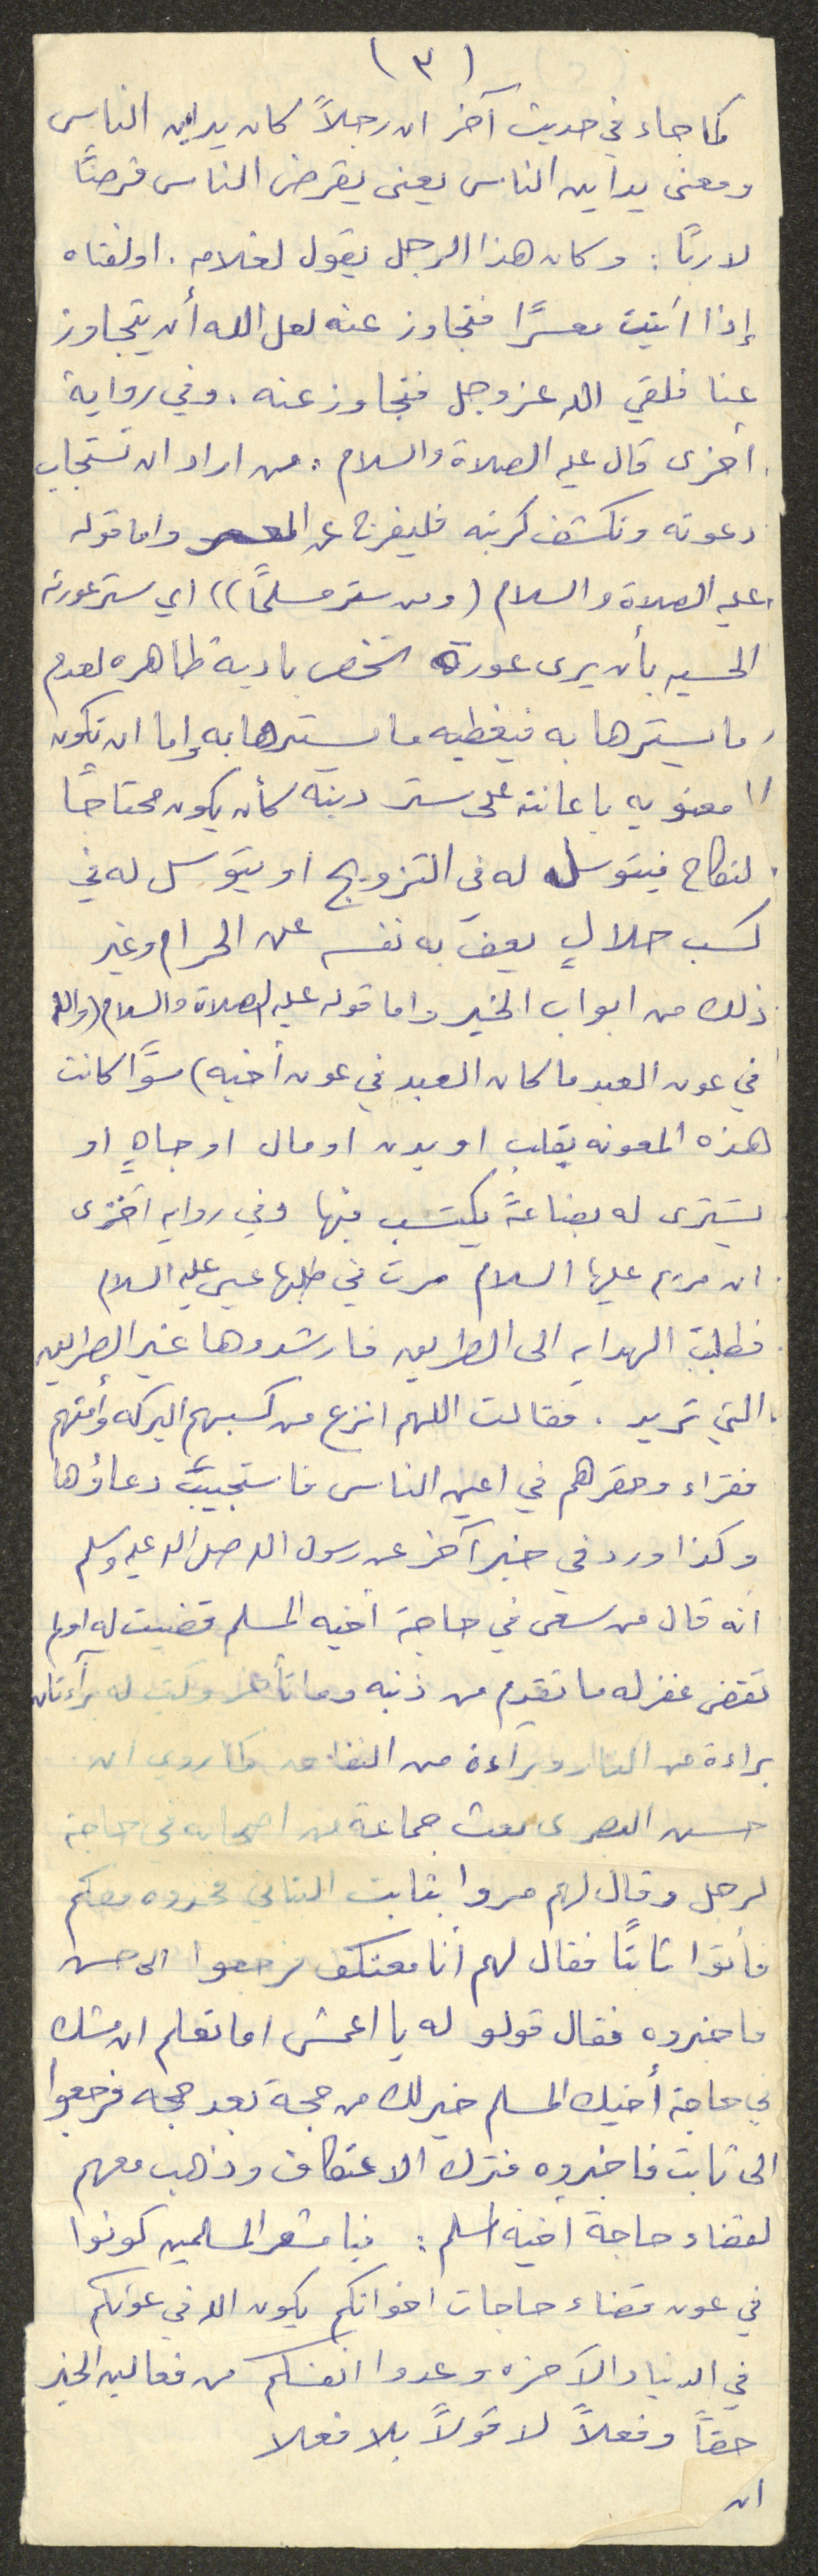 (٣)
كما جاء في حديث آخر ان رجلاً كان يداين الناس
ومعنى يداين الناس يعنى يقرض الناس قرضًا
لا ربًا : وكان هذا الرجل يقول لغلامه . اولفتاه
إذا أتيت معسرًا فتجاوز عنه لعل الله أن يتجاوز
عنا فلقي الله عز وجل فتجاوز عنه . وفي رواية
أخرى قال عليه الصلاة والسلام : من اراد ان تستجاب
دعوته وتكشف كربته فليفرج عن المعسر واما قوله
عليه الصلاة والسلام (ومن ستر مسلمًا)) اي ستر عورته
الحسيه بأن يرى عورة شخص بادية ظاهره لعدم
ما يسترها به فيغطيه ما يسترها به واما ان تكون
معنويه باعانته على ستر دينه كأن يكون محتاجًا
لنكاح فيتوسل له في التزويج او يتوسل له في
كسب حلالٍ يعف به نفسه عن الحرام وغير
ذلك من ابواب الخير واما قوله عليه الصلاة والسلام (والله
في عون العبد ما كان العبد في عون أخيه) سوًا كانت
هذه المعونه بقلب او بدن او مال او جاهٍ او
يشترى له بضاعةً يكتسب فيها وفي روايه أخرى
ان مريم عليها السلام مرت في طلبها عيسى عليه السلام
فطلبت الهدايه الى الطريق فارشدوها غير الطريق
التي تريد . فقالت اللهم انزع من كسبهم البركه وأمتهم
فقراء وحقرهم في اعين الناس فاستجيبت دعاؤها
وكذا ورد في خبر آخر عن رسول الله صلى الله عليه وسلم
أنه قال من سعى في حاجة أخيه المسلم قضيت له اولم
تقض غفر له ما تقدم من ذنبه وما تأخر وكتب له برآءتان
براءة من النار وبراءة من النفاق وكما روي ان
حسن البصرى بعث جماعة من اصحابه في حاجة
لرجل وقال لهم مروا بثابت البناني فخذوه معكم
فأتوا ثابتًا فقال لهم أنا معتكف فرجعوا الى حسن
فاخبروه فقال قولو له يا اعمش اما تعلم ان مشيك
في حاجة أخيك المسلم خير لك من حجة بعد حجه فرجعوا
الى ثابت فاخبروه فترك الاعتكاف وذهب معهم
لقضاء حاجة أخيه المسلم : فيا معشر المسلمين كونوا
في عون قضاء حاجات اخوانكم يكون الله في عونكم
في الدنيا والآخره وعدوا انفسكم من فعالين الخير
حقاً وفعلاً لا قولاً بلا فعلا
ان